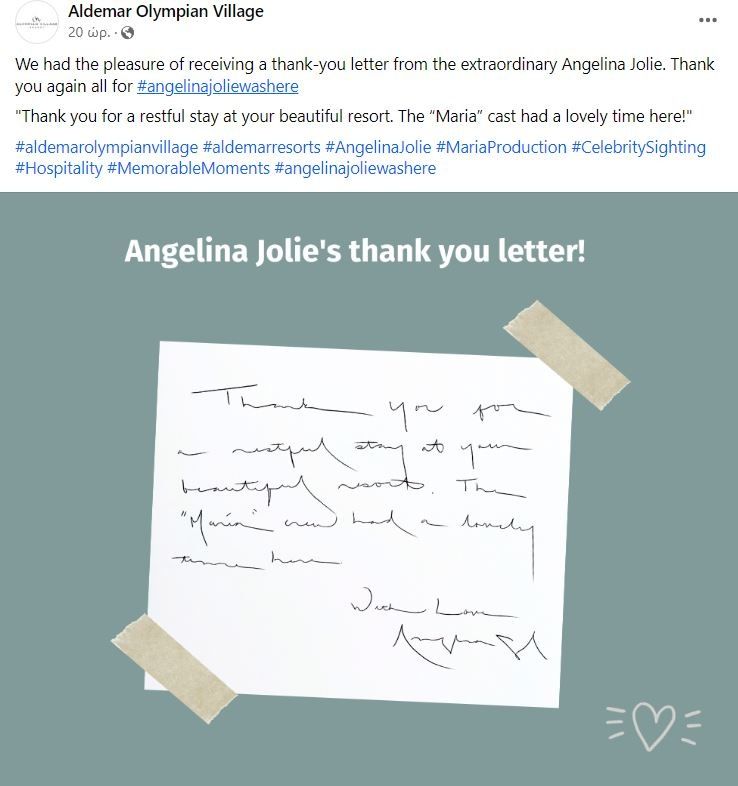 Aldemar Olympian Village
20 ώρ. ·
We had the pleasure of receiving a thank-you letter from the extraordinary Angelina Jolie. Thank
you again all for #angelinajoliewashere
"Thank you for a restful stay at your beautiful resort. The “Maria” cast had a lovely time here!"
#aldemarolympianvillage #aldemarresorts #AngelinaJolie #MariaProduction #CelebritySighting
#Hospitality #MemorableMoments #angelinajoliewashere
Angelina Jolie's thank you letter!
Thank you for
a restful stay at your
beautiful resort. The
"Maria" crew had a lovely
time here
With Love